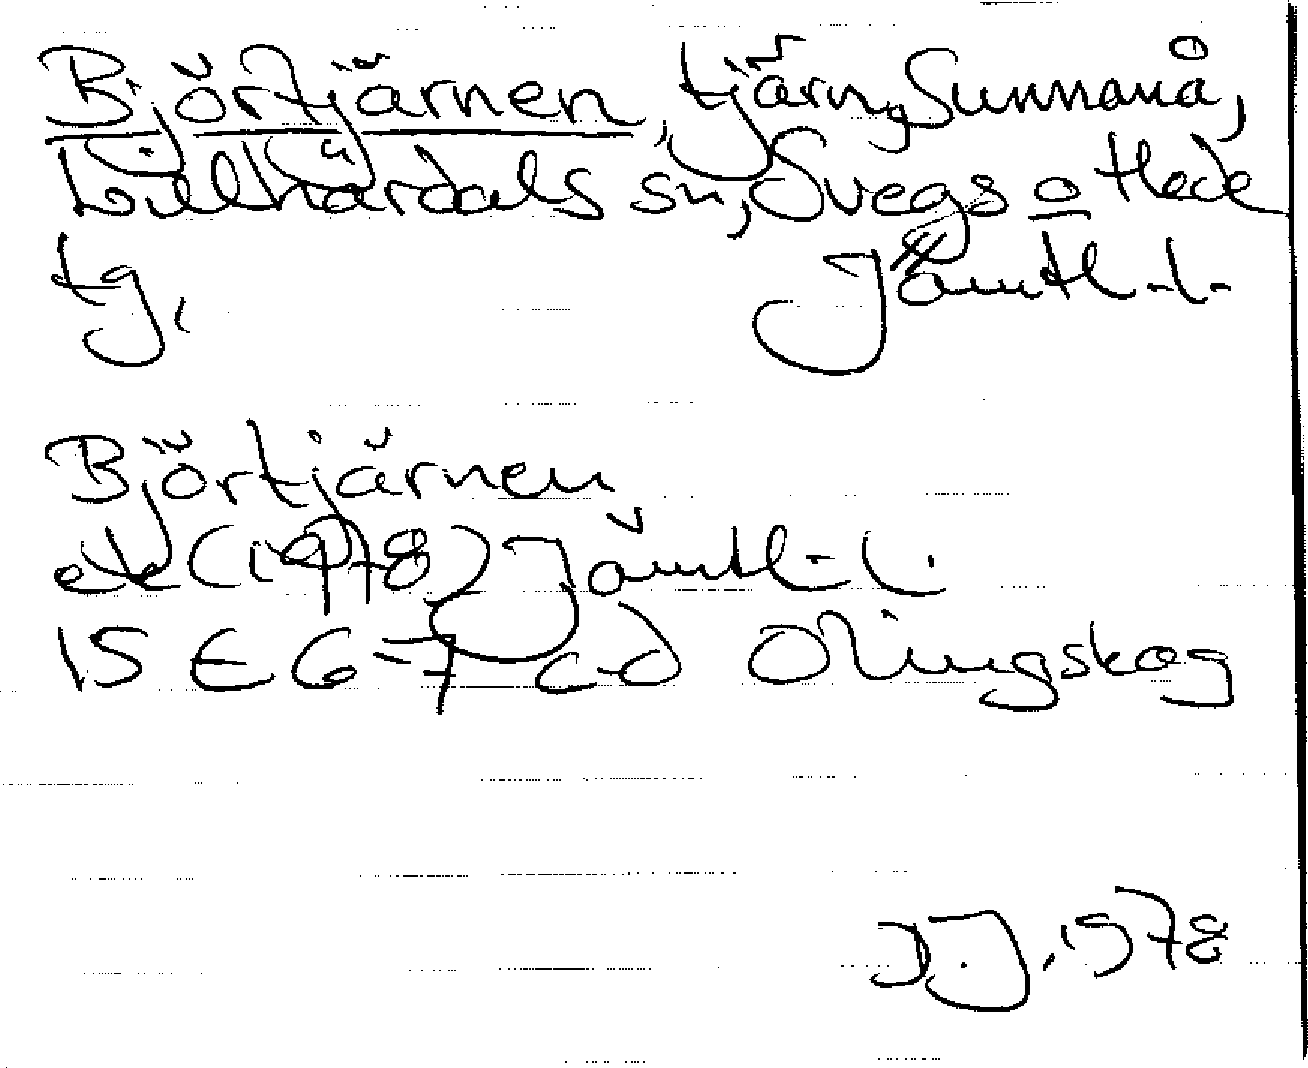 Björtjärnen, tjärn, Sunnanå,
Lillhärdals sn, Svegs o Hede
tg, Jämtl. l.
Björtjärnen
ek (1978) Jämtl. l.
15 E 6-7 c-d Olingskog
D.J. 1978